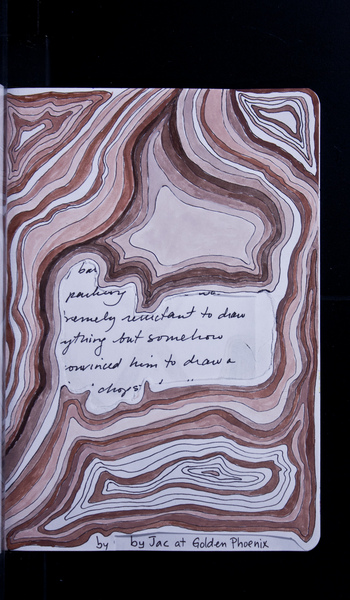 bar
parking
remely reluctant to draw
ything but somehow
onvinced him to draw a
"chops"
by by Jac at Golden Phoenix